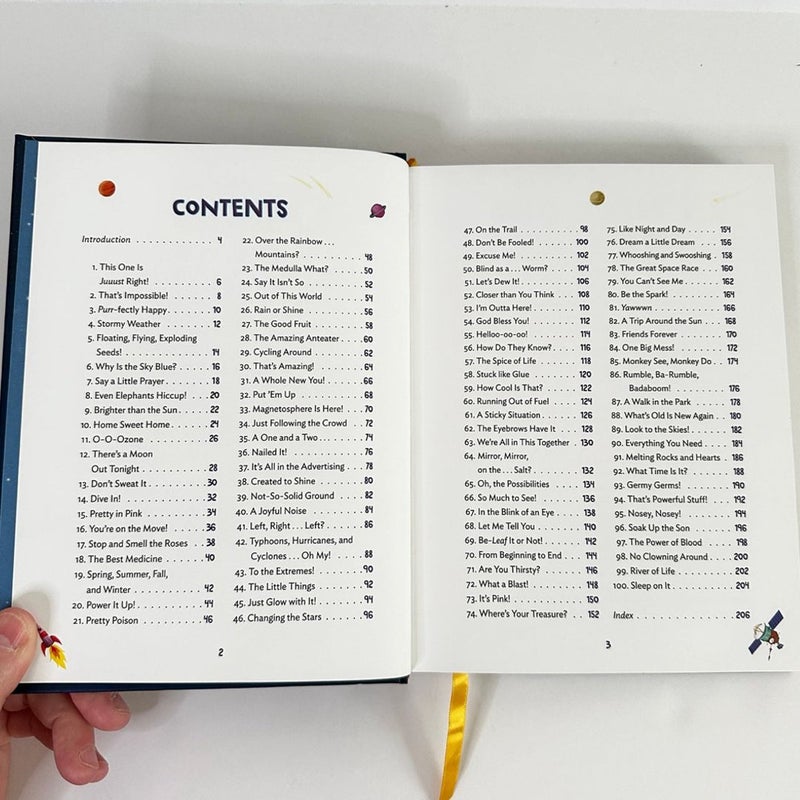 CONTENTS
Introduction . . . . . . . . . . . . 4
1. This One Is
Juuust Right! . . . . . . . . . . 6
2. That's Impossible! . . . . . . . 8
3. Purr-fectly Happy . . . . . . . 10
4. Stormy Weather . . . . . . . 12
5. Floating, Flying, Exploding
Seeds! . . . . . . . . . . . . . 14
6. Why Is the Sky Blue? . . . . . 16
7. Say a Little Prayer . . . . . . . 18
8. Even Elephants Hiccup! . . . 20
9. Brighter than the Sun . . . . . 22
10. Home Sweet Home . . . . . . 24
11. O-O-Ozone . . . . . . . . . . 26
12. There's a Moon
Out Tonight . . . . . . . . . . 28
13. Don't Sweat It . . . . . . . . . 30
14. Dive In! . . . . . . . . . . . . 32
15. Pretty in Pink . . . . . . . . . 34
16. You're on the Move! . . . . . 36
17. Stop and Smell the Roses . . 38
18. The Best Medicine . . . . . . 40
19. Spring, Summer, Fall,
and Winter . . . . . . . . . . 42
20. Power It Up! . . . . . . . . . . 44
21. Pretty Poison . . . . . . . . . 46
22. Over the Rainbow . . .
Mountains? . . . . . . . . . . 48
23. The Medulla What? . . . . . . 50
24. Say It Isn't So . . . . . . . . . 52
25. Out of This World . . . . . . 54
26. Rain or Shine . . . . . . . . . 56
27. The Good Fruit . . . . . . . . 58
28. The Amazing Anteater . . . . 60
29. Cycling Around . . . . . . . . 62
30. That's Amazing! . . . . . . . . 64
31. A Whole New You! . . . . . . 66
32. Put 'Em Up . . . . . . . . . . 68
33. Magnetosphere Is Here! . . . 70
34. Just Following the Crowd . . 72
35. A One and a Two . . . . . . . 74
36. Nailed It! . . . . . . . . . . . 76
37. It's All in the Advertising . . . 78
38. Created to Shine . . . . . . . 80
39. Not-So-Solid Ground . . . . . 82
40. A Joyful Noise . . . . . . . . 84
41. Left, Right . . . Left? . . . . . . 86
42. Typhoons, Hurricanes, and
Cyclones . . . Oh My! . . . . . 88
43. To the Extremes! . . . . . . . 90
44. The Little Things . . . . . . . 92
45. Just Glow with It! . . . . . . . 94
46. Changing the Stars . . . . . . 96
2
47. On the Trail . . . . . . . . . . 98
48. Don't Be Fooled! . . . . . . . 100
49. Excuse Me! . . . . . . . . . . 102
50. Blind as a . . . Worm? . . . . 104
51. Let's Dew It! . . . . . . . . . 106
52. Closer than You Think . . . . 108
53. I'm Outta Here! . . . . . . . . 110
54. God Bless You! . . . . . . . . 112
55. Helloo-oo-oo! . . . . . . . . 114
56. How Do They Know? . . . . . 116
57. The Spice of Life . . . . . . . 118
58. Stuck like Glue . . . . . . . . 120
59. How Cool Is That? . . . . . . 122
60. Running Out of Fuel . . . . . 124
61. A Sticky Situation . . . . . . . 126
62. The Eyebrows Have It . . . . 128
63. We're All in This Together . . 130
64. Mirror, Mirror,
on the . . . Salt? . . . . . . . 132
65. Oh, the Possibilities . . . . . 134
66. So Much to See! . . . . . . . 136
67. In the Blink of an Eye . . . . . 138
68. Let Me Tell You . . . . . . . . 140
69. Be-Leaf It or Not! . . . . . . . 142
70. From Beginning to End . . . . 144
71. Are You Thirsty? . . . . . . . 146
72. What a Blast! . . . . . . . . . 148
73. It's Pink! . . . . . . . . . . . 150
74. Where's Your Treasure? . . . 152
75. Like Night and Day . . . . . . 154
76. Dream a Little Dream . . . . 156
77. Whooshing and Swooshing . 158
78. The Great Space Race . . . . 160
79. You Can't See Me . . . . . . 162
80. Be the Spark! . . . . . . . . . 164
81. Yawwwn . . . . . . . . . . . 166
82. A Trip Around the Sun . . . . 168
83. Friends Forever . . . . . . . . 170
84. One Big Mess! . . . . . . . . 172
85. Monkey See, Monkey Do . . 174
86. Rumble, Ba-Rumble,
Badaboom! . . . . . . . . . . 176
87. A Walk in the Park . . . . . . 178
88. What's Old Is New Again . . 180
89. Look to the Skies! . . . . . . 182
90. Everything You Need . . . . . 184
91. Melting Rocks and Hearts . . 186
92. What Time Is It? . . . . . . . 188
93. Germy Germs! . . . . . . . . 190
94. That's Powerful Stuff! . . . . 192
95. Nosey, Nosey! . . . . . . . . 194
96. Soak Up the Son . . . . . . . 196
97. The Power of Blood . . . . . 198
98. No Clowning Around . . . . . 200
99. River of Life . . . . . . . . . . 202
100. Sleep on It . . . . . . . . . . 204
Index . . . . . . . . . . . . . . . 206
3